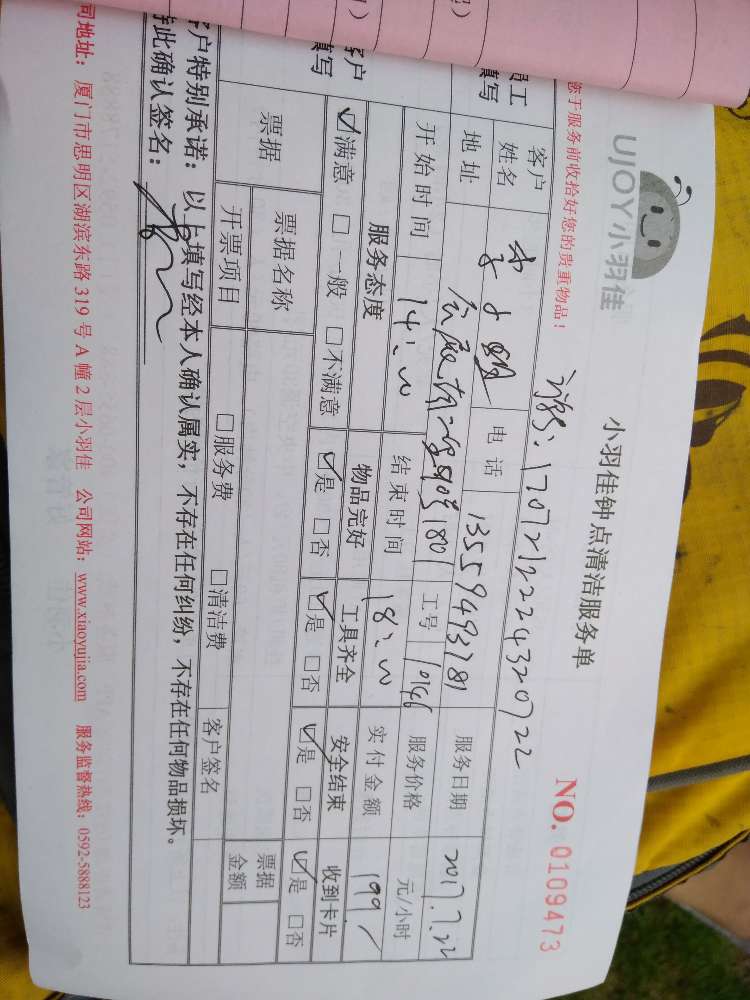 UJOY小羽佳
小羽佳钟点清洁服务单
NO. 0109473
您于服务前收拾好您的贵重物品!
1707212224320722
客户姓名 电话 13559493781 服务日期 2017.7.22
地址 1801 工号 服务价格 元/小时
开始时间 14:00 结束时间 18:00 实付金额 199/
服务态度 物品完好 工具齐全 安全结束 收到卡片
☑满意 □一般 □不满意 ☑是 □否 ☑是 □否 ☑是 □否 ☑是 □否
票据 票据名称 票据金额
开票项目 □服务费 □清洁费 客户签名
户特别承诺:以上填写经本人确认属实,不存在任何纠纷,不存在任何物品损坏。
此确认签名:
司地址:厦门市思明区湖滨东路319号A幢2层小羽佳 公司网站:www.xiaoyujia.com 服务监督热线:0592-5888123
员工
填写
客户
填写